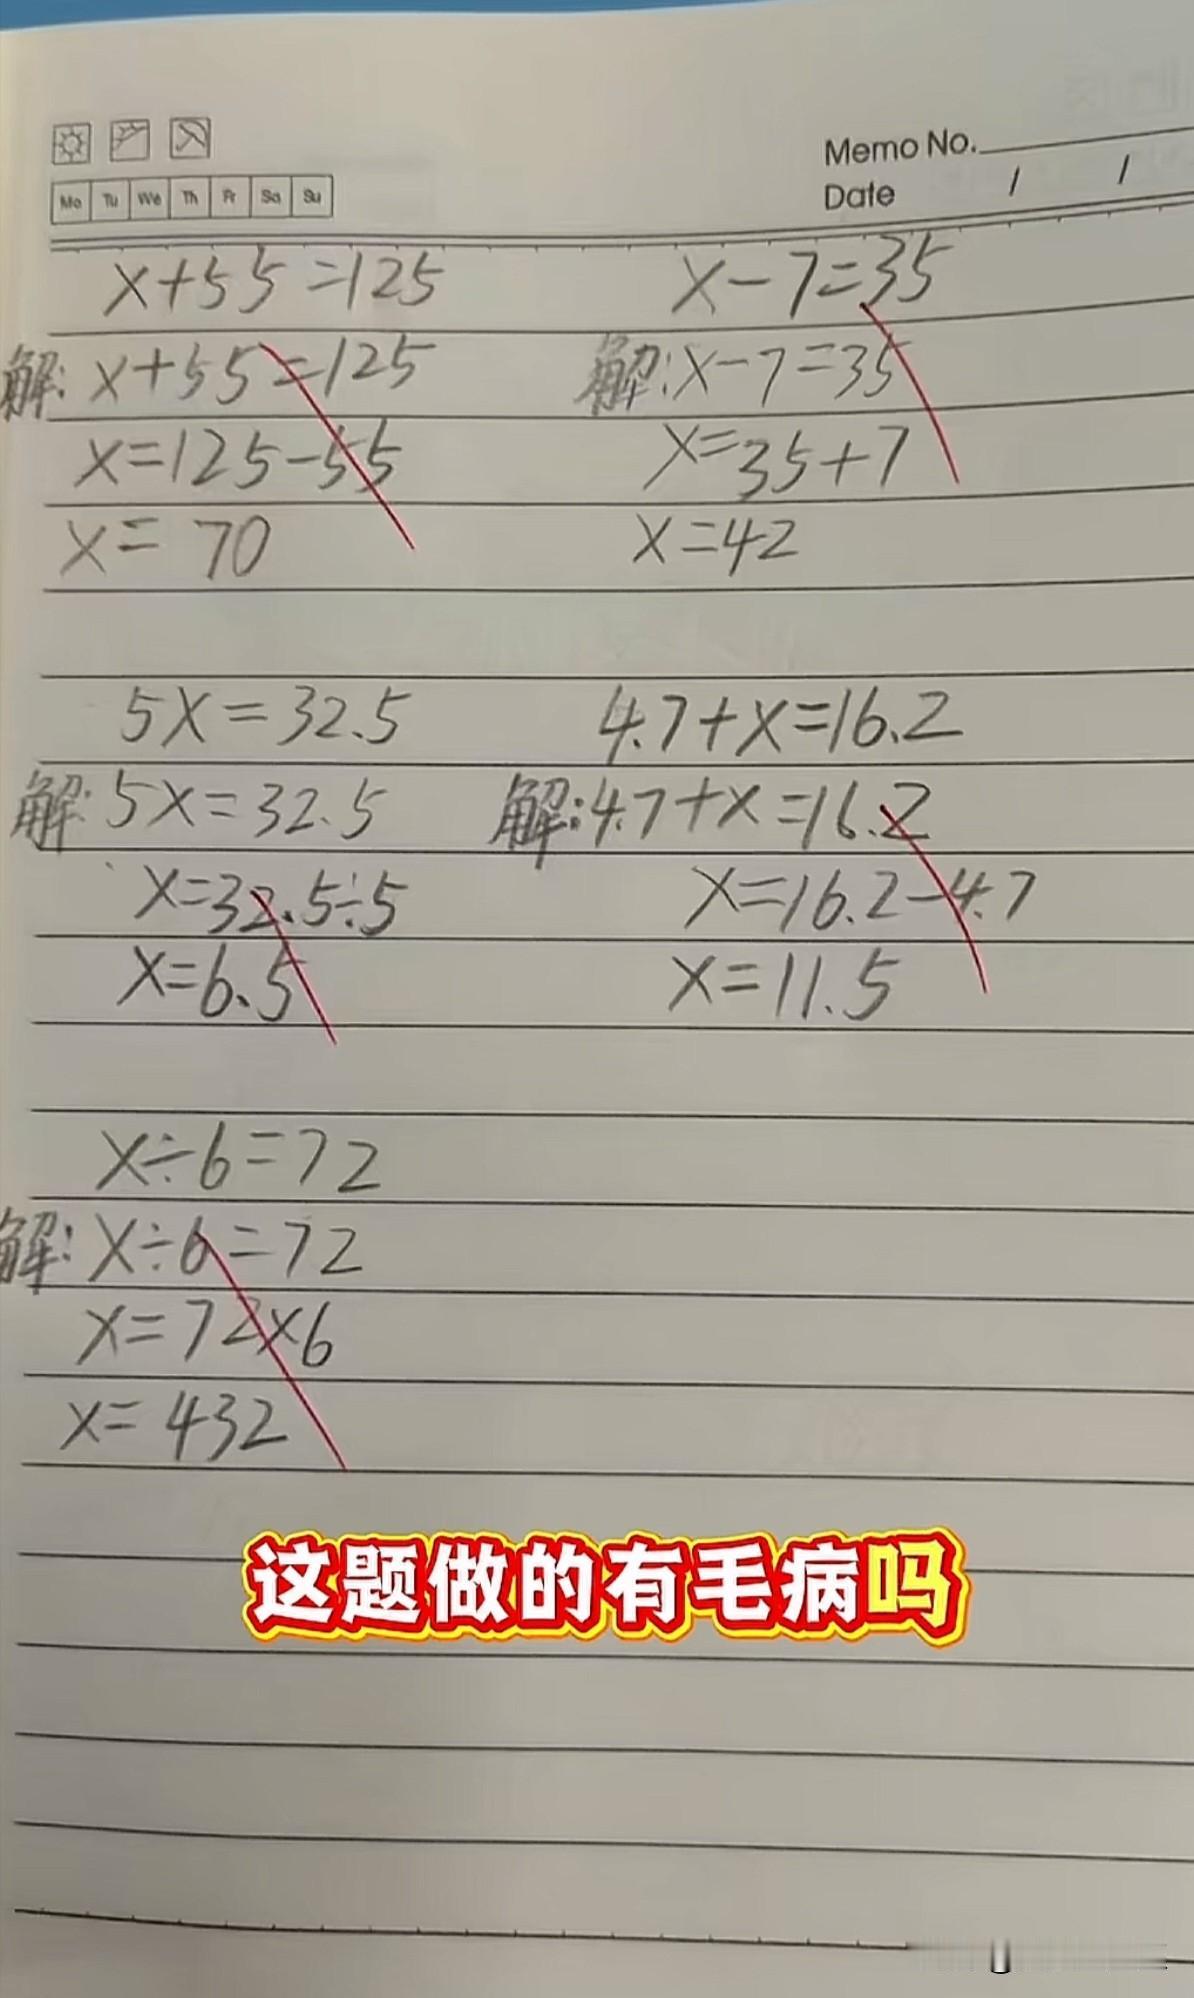 Memo No.
Mo Tu We Th Fr Sa Su
Date / /
x+55=125
解:x+55=125
x=125-55
x=70
x-7=35
解:x-7=35
x=35+7
x=42
5x=32.5
解:5x=32.5
x=32.5÷5
x=6.5
4.7+x=16.2
解:4.7+x=16.2
x=16.2-4.7
x=11.5
x÷6=72
解:x÷6=72
x=72×6
x=432
这题做的有毛病吗